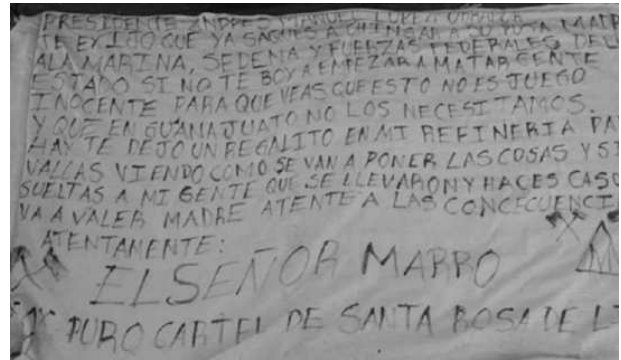 PRESIDENTE ANDRES MANUEL LOPEZ OBRADOR
TE EXIJO QUE YA SAQUES A CHINGAR A SU PUTA MADRE
A LA MARINA, SEDEMA Y FUERZAS FEDERALES DEL
ESTADO SI NO TE BOY A EMPEZAR A MATAR GENTE
INOCENTE PARA QUE VEAS QUE ESTO NO ES JUEGO
Y QUE EN GUANAJUATO NO LOS NECESITAMOS.
HAY TE DEJO UN REGALITO EN MI REFINERIA PA
VALLAS VIENDO COMO SE VAN A PONER LAS COSAS Y SI
SUELTAS A MI GENTE QUE SE LLEVARON Y HACES CASO
VA A VALER MADRE ATENTE A LAS CONCECUENCI
ATENTAMENTE:
EL SEÑOR MARRO
PURO CARTEL DE SANTA ROSA DE LI